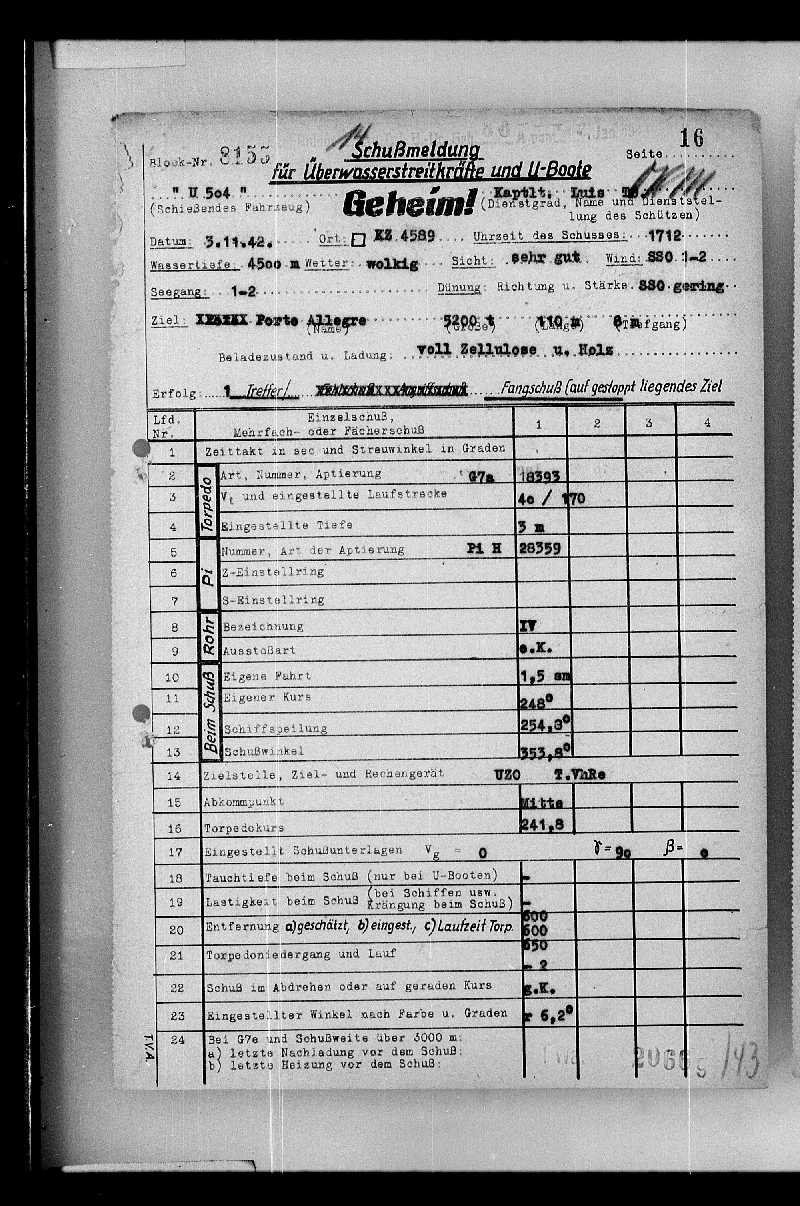 14
16
Block-Nr. 8155 Schußmeldung Seite
für Überwasserstreitkräfte und U-Boote
" U 504 " Geheim! Kaptlt. Luis
(Schießendes Fahrzeug) (Dienstgrad, Name und Dienststel-
lung des Schützen)
Datum: 3.11.42. Ort: KZ 4589 Uhrzeit des Schusses: 1712
Wassertiefe: 4500 m Wetter: wolkig Sicht: sehr gut Wind: SSO 1-2
Seegang: 1-2 Dünung: Richtung u. Stärke. SSO gering
Ziel: Porto Allegre 5200 t 110 m 8 m
(Name) (Größe) (Länge) (Tiefgang)
Beladezustand u. Ladung: voll Zellulose u. Holz
Erfolg: 1 Treffer/ Fangschuß (auf gestoppt liegendes Ziel
Lfd. Nr. Einzelschuß, Mehrfach- oder Fächerschuß 1 2 3 4
1 Zeittakt in sec und Streuwinkel in Graden
Torpedo
2 Art, Nummer, Aptierung G7a 18393
3 Vt und eingestellte Laufstrecke 40 / 170
4 Eingestellte Tiefe 3 m
Pi
5 Nummer, Art der Aptierung Pi H 28359
6 Z-Einstellring
7 S-Einstellring
Rohr
8 Bezeichnung IV
9 Ausstoßart e.K.
Beim Schuß
10 Eigene Fahrt 1,5 sm
11 Eigener Kurs 248°
12 Schiffspeilung 254,8°
13 Schußwinkel 353,8°
14 Zielstelle, Ziel- und Rechengerät UZO T.VhRe
15 Abkommpunkt Mitte
16 Torpedokurs 241,8
17 Eingestellt Schußunterlagen Vg = 0 γ= 90 β= 0
18 Tauchtiefe beim Schuß (nur bei U-Booten) -
19 Lastigkeit beim Schuß (bei Schiffen usw. Krängung beim Schuß) -
20 Entfernung a)geschätzt, b)eingest., c)Laufzeit Torp. 600 600 650
21 Torpedoniedergang und Lauf - 2
22 Schuß im Abdrehen oder auf geraden Kurs g.K.
23 Eingestellter Winkel nach Farbe u. Graden r 6,2°
24 Bei G7e und Schußweite über 3000 m:
a) letzte Nachladung vor dem Schuß:
b) letzte Heizung vor dem Schuß:
T.V.A.
/43